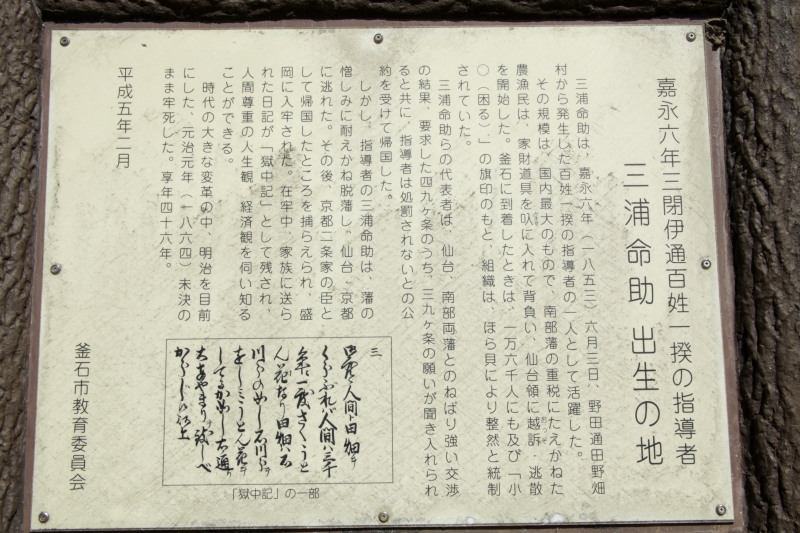 嘉永六年三閉伊通百姓一揆の指導者
三浦命助 出生の地
三浦命助は、嘉永六年（一八五三）六月三日、野田通田野畑
村から発生した百姓一揆の指導者の一人として活躍した。
その規模は、国内最大のもので、南部藩の重税にたえかねた
農漁民は、家財道具を叺に入れて背負い、仙台領に越訴・逃散
を開始した。釜石に到着したときは、一万六千人にも及び「小
○（困る）」の旗印のもと、組織は、ほら貝により整然と統制
されていた。
三浦命助らの代表者は、仙台、南部両藩とのねばり強い交渉
の結果、要求した四九ヶ条のうち、三九ヶ条の願いが聞き入れられ
ると共に、指導者は処罰されないとの公
約を受けて帰国した。
しかし、指導者の三浦命助は、藩の
憎しみに耐えかね脱藩し、仙台、京都
に逃れた。その後、京都二条家の臣と
して帰国したところを捕らえられ、盛
岡に入牢された。在牢中、家族に送ら
れた日記が「獄中記」として残され、
人間尊重の人生観、経済観を伺い知る
ことができる。
時代の大きな変革の中、明治を目前
にした、元治元年（一八六四）未決の
まま牢死した。享年四十六年。
平成五年二月
釜石市教育委員会
三
人間ト田畑ヲ
くらぶれバ人間ハ三千
年ニ一度さくうと
ん花なり田畑ハ石
「獄中記」の一部